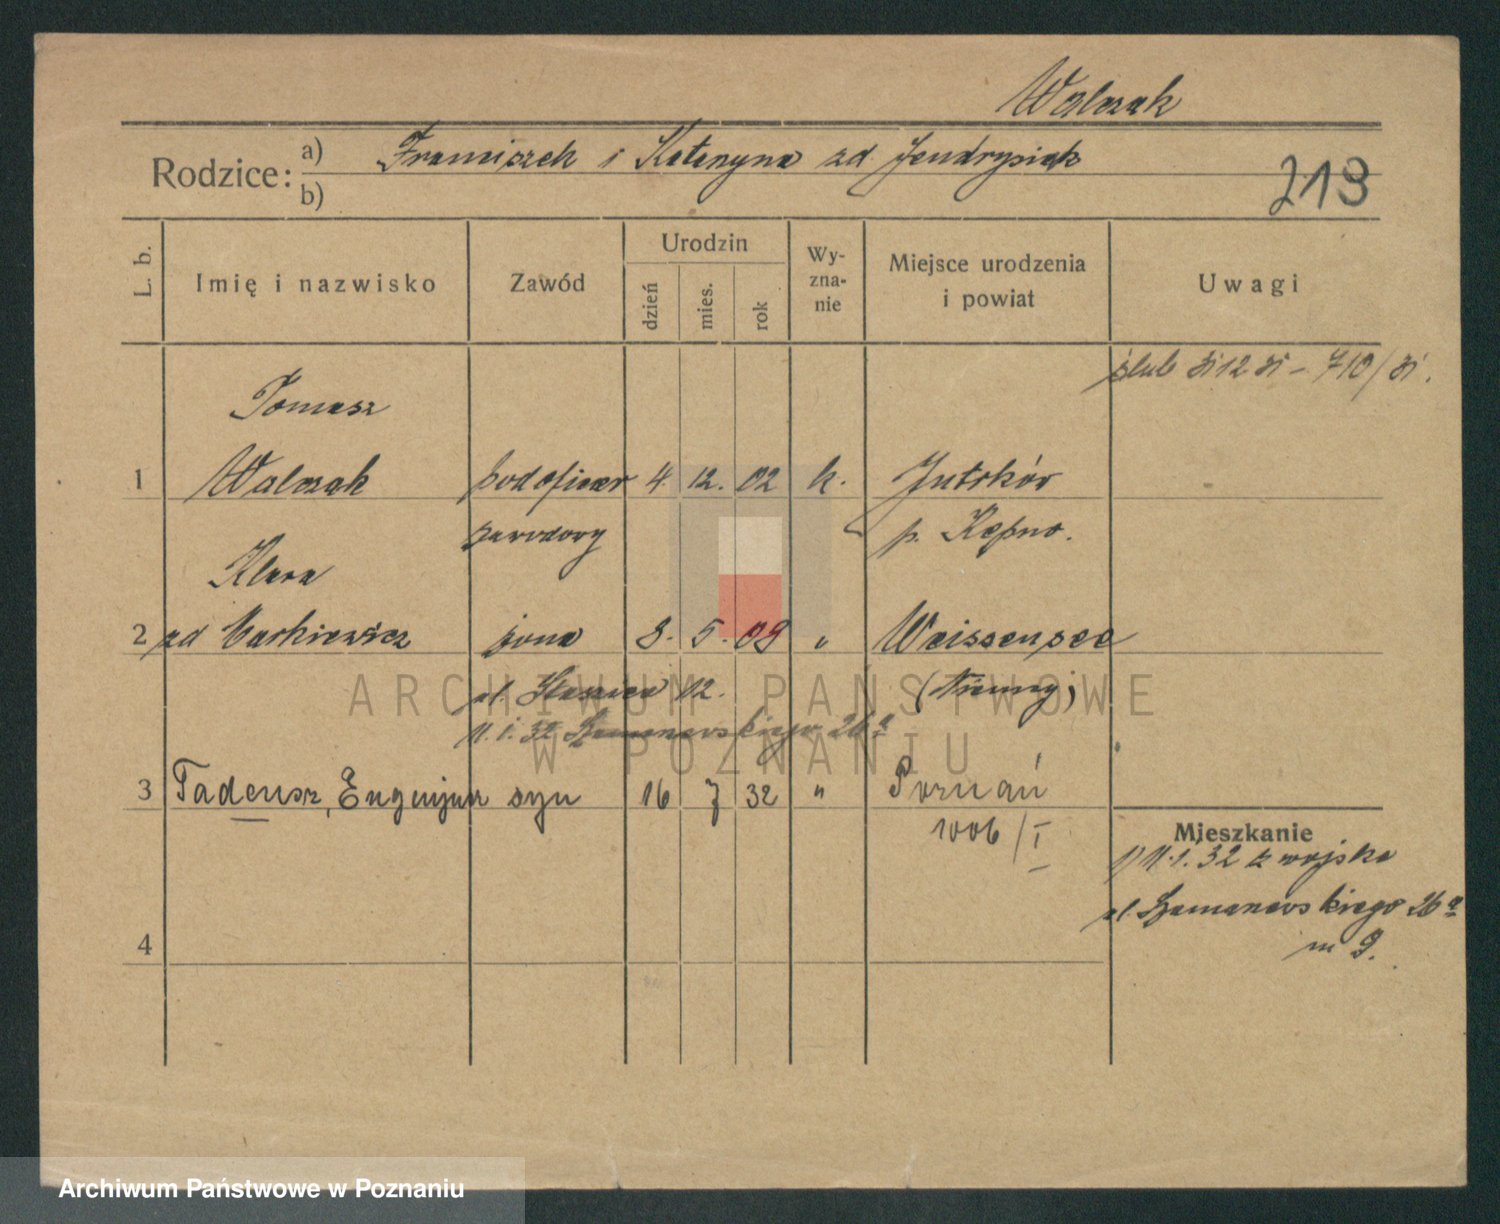 Walczak
Rodzice: a) Franciszek i Katarzyna zd Jendrysiak
b)
213
L. b. Imię i nazwisko Zawód Urodzin dzień mies. rok Wy-zna-nie Miejsce urodzenia i powiat Uwagi
ślub 31 12 31 – 710/31.
Tomasz
1 Walczak podoficer 4 12. 02 k. Jutrków
zawodowy p. Kępno.
Klara
2 zd Markiewicz żona 8. 5. 09 " Weissensee
ul. Staszica 12. (Niemcy)
11.1.32 Szamarzewskiego 26a
3 Tadeusz, Eugenjusz syn 16 7 32 " Poznań
1006/I
Mieszkanie
1) 11.1.32 z wojska
ul. Szamarzewskiego 26a
m 9.
4
ARCHIWUM PAŃSTWOWE
W POZNANIU
Archiwum Państwowe w Poznaniu